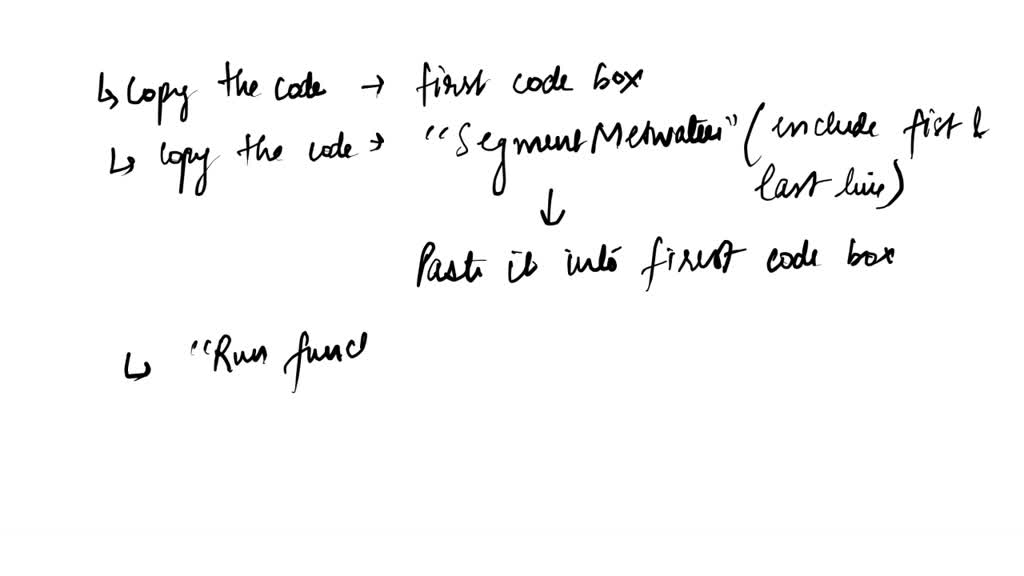 ↳ Copy the code → first code box
↳ Copy the code → "Segment (include fist &
last line)
↓
Paste it into first code box
↳ "Run func